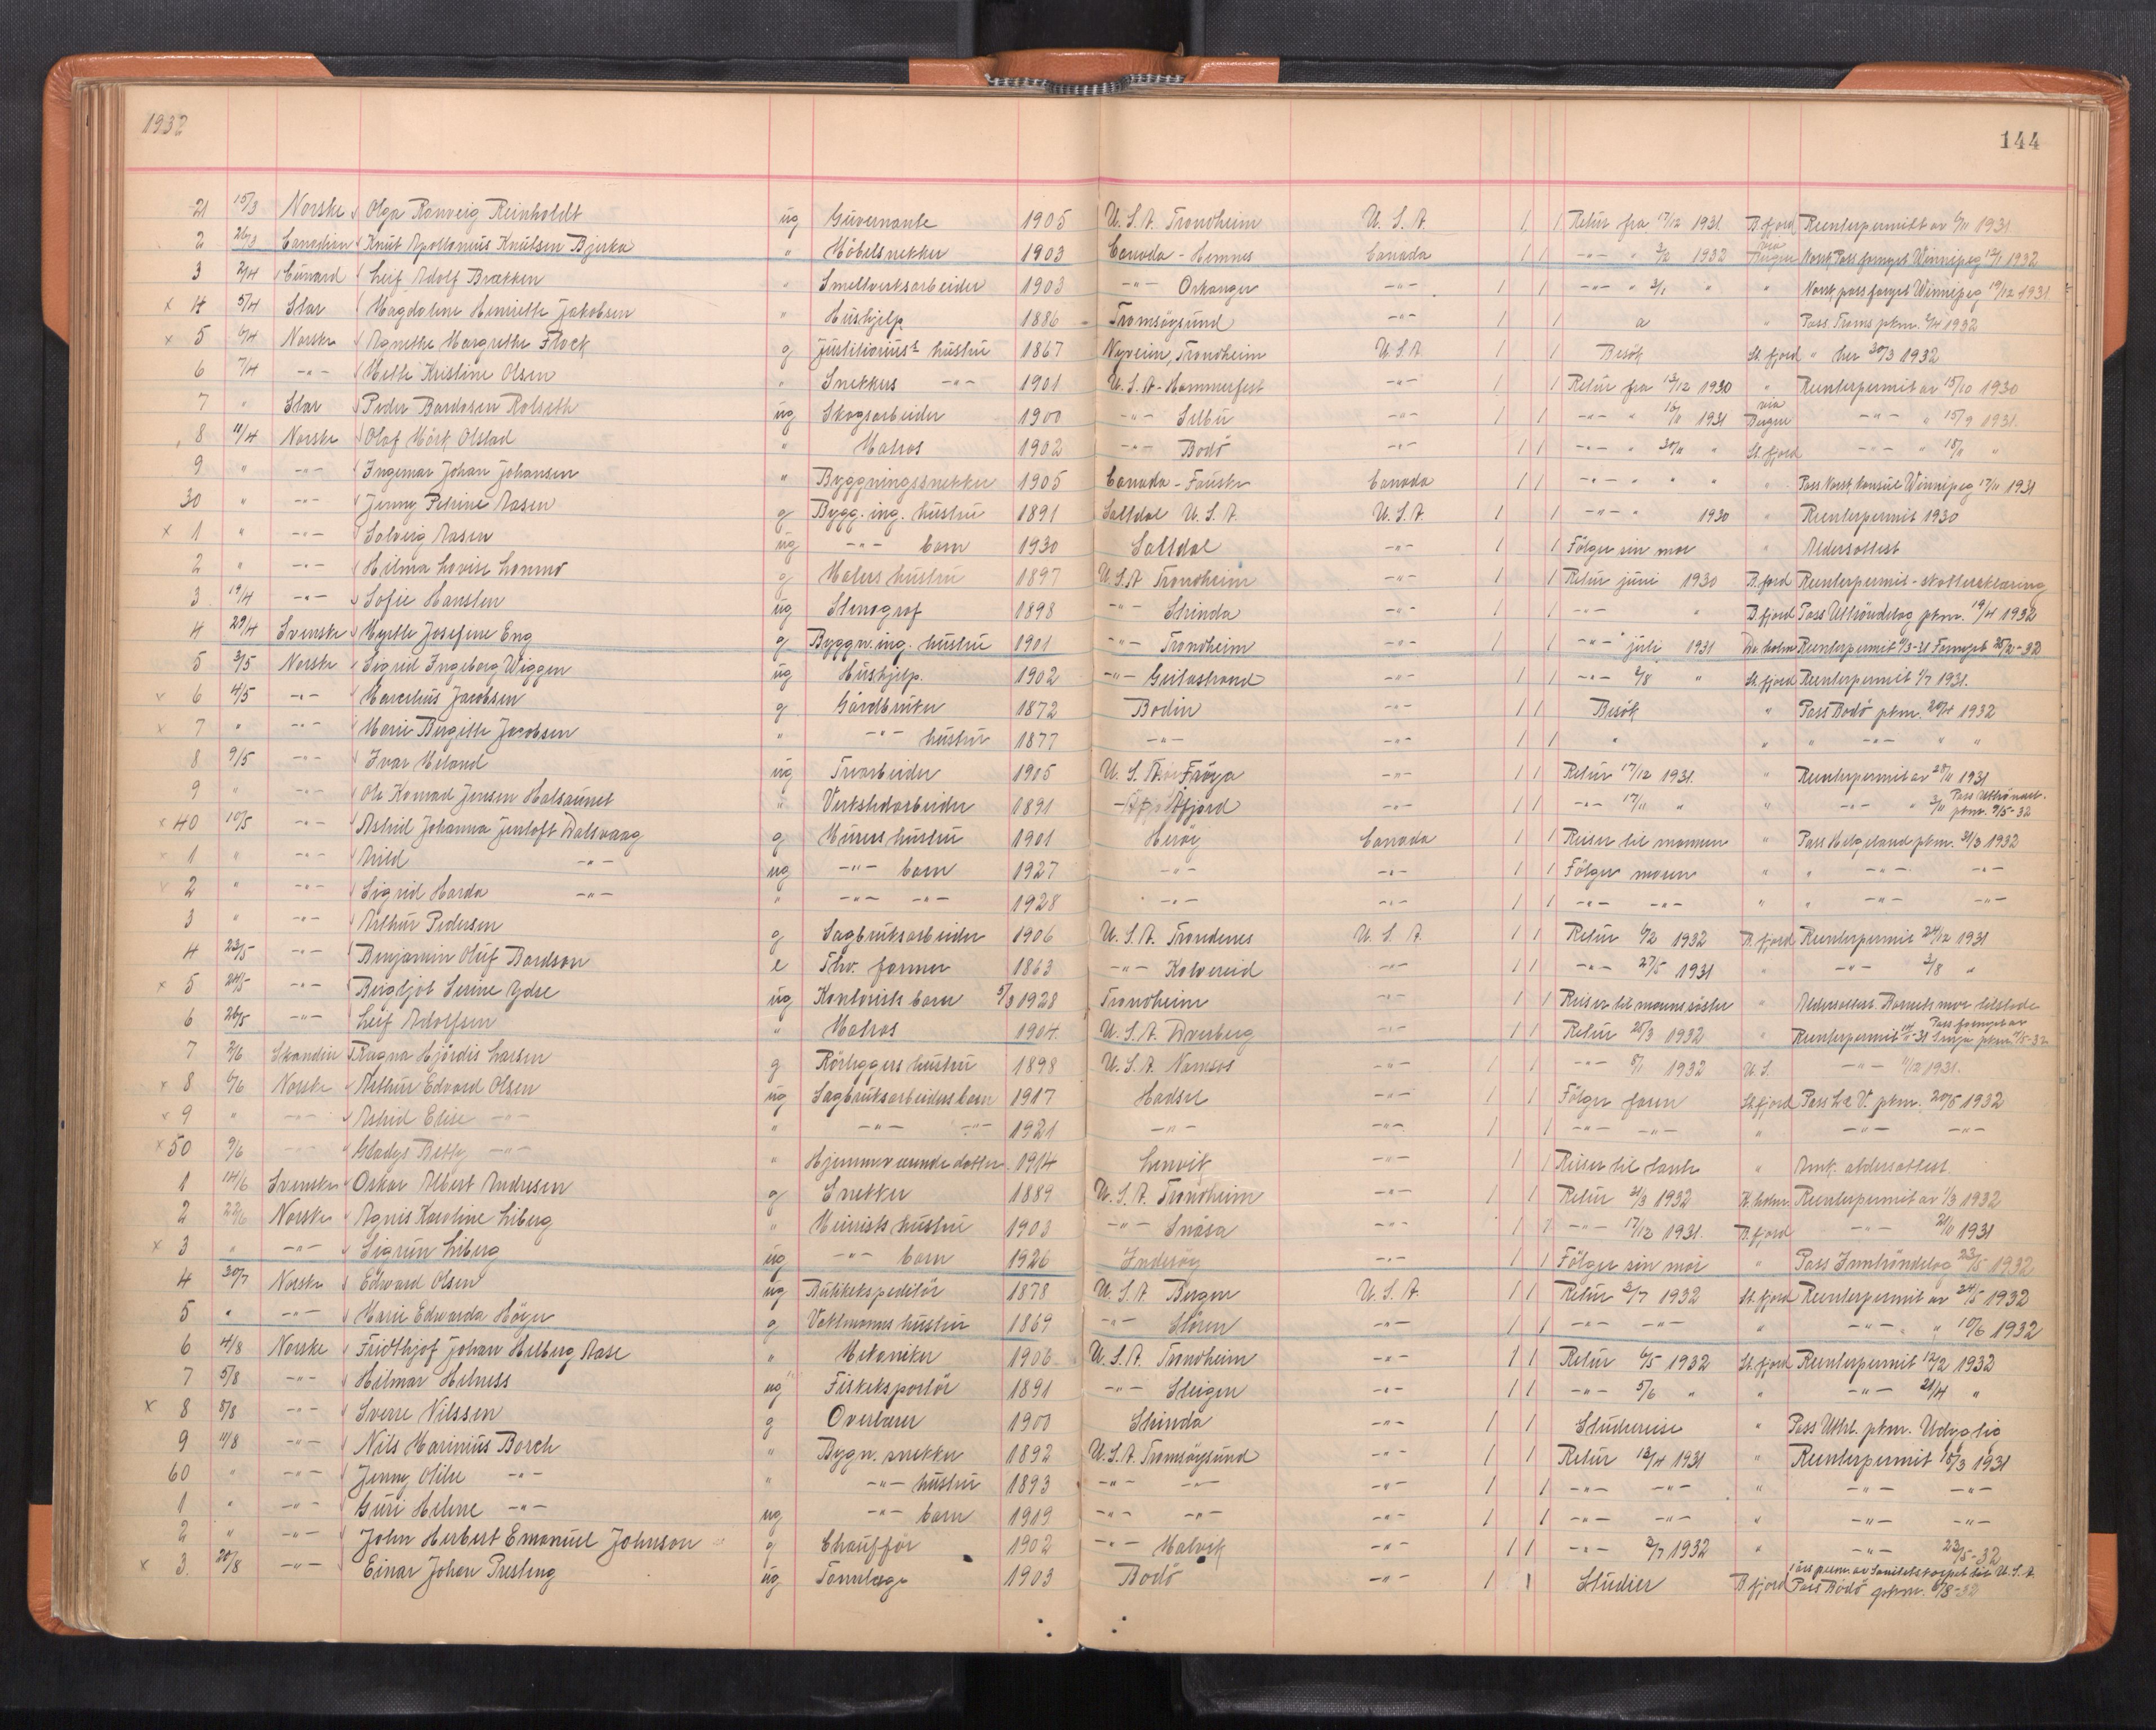 1932
144
21 15/3 Norske Olga Ranveig Reinholdt ug Guvernante 1905 U.S.A. Trondheim U.S.A. 1 1 Retur fra 17/12 1931 B.fjord Reenterpermitt av 6/11 1931
2 26/3 Canadian Knut Apollonius Knutsen Bjerka " Möbelsnekker 1903 Canada - Hemnes Canada 1 1 -"- " 1932 via Bergen Norsk Pass fornyet Winnipeg 1932
3 2/4 Cunard Leif Adolf Brækken " Smelteverksarbeider 1903 -"- Orkanger -"- 1 1 -"- " 3/1 " " Norsk pass fornyet Winnipeg 19/12 1931
x 4 5/4 Star Magdalene Henriette Jakobsen " Hushjelp 1886 Tromsöysund -"- 1 1 a " Pass Troms pkm. 1932
x 5 6/4 Norske Agnethe Margrethe Flock g justitiarius's hustru 1867 Nyveien, Trondheim U.S.A. 1 1 Besök St.fjord " her 30/3 1932
6 7/4 -"- Mette Kristine Olsen " Snekkers -"- 1901 U.S.A - Hammerfest -"- 1 1 Retur fra 13/12 1930 " Reenterpermit av 15/10 1930
7 " Star Peder Bardosen Rolseth ug Skogsarbeider 1900 -"- Selbu -"- 1 1 -"- " 16/11 1931 via Bergen -"- " 15/9 1931.
8 11/4 Norske Olaf Mörk Olstad " Matros 1902 -"- Bodö -"- 1 1 -"- " 30/11 " St.fjord -"- " 18/11 "
9 " -"- Ingemar Johan Johansen " Byggningssnekker 1905 Canada - Fauske Canada 1 1 -"- " " " " Pass Norsk konsul Winnipeg 17/11 1931
30 " -"- Jenny Petrine Aasen g Bygg. ing. hustru 1891 Saltdal U.S.A. U.S.A. 1 1 -"- " 1930 " Reenterpermit 1930
x 1 " -"- Solveig Aasen ug -"- barn 1930 Saltdal -"- 1 1 Fölger sin mor " Aldersattest
2 " -"- Hilma Lovise Lonmo g Malers hustru 1897 U.S.A Trondheim -"- 1 1 Retur juni 1930 B.fjord Reenterpermit - skatteerklæring
3 19/4 -"- Sofie Hansten ug Stenograf 1898 -"- Strinda -"- 1 1 -"- " B.fjord Pass Uttröndelag pkm. 19/4 1932
4 29/4 Svenske Myrtle Josefine Eng g Byggn. ing. hustru 1901 -"- Trondheim -"- 1 1 -"- " juli 1931 Dr.holm Reenterpermit 11/3-31 Fornyet -32
5 3/5 Norske Sigrid Ingeborg Wiggen ug Hushjelp. 1902 -"- Geitastrand -"- 1 1 -"- 2/8 " St.fjord Reenterpermit 1/7 1931.
x 6 4/5 -"- Marcelius Jacobsen g Gårdbruker 1872 Bodin -"- 1 1 Besök " Pass Bodö pkm. 20/4 1932
x 7 " -"- Marie Birgitte Jacobsen " -"- hustru 1877 -"- -"- 1 1 " " " -"- " "
8 9/5 -"- Ivar Meland ug Trearbeider 1905 U.S.A. Fröya -"- 1 1 Retur 17/12 1931. " Reenterpermit av 28/11 1931
9 " -"- Ole Konrad Jensen Halsaunet " Verkstedarbeider 1891 Åfjord -"- 1 1 -"- 17/11 " " -"- " 3/11 Pass Uttröndel. pkm. 9/5-32
x 40 10/5 -"- Astrid Johanna Jentoft Dalsvaag g Murers hustru 1901 Heröy Canada 1 1 Reiser til mannen " Pass Helgeland pkm. 31/3 1932
x 1 " -"- Arild -"- ug -"- barn 1927 -"- -"- 1 1 Fölger moren " " -"- -"-
x 2 " -"- Sigrid Harda -"- " -"- -"- 1928 -"- -"- 1 1 -"- -"- " " -"- -"-
3 " -"- Arthur Pedersen g Sagbruksarbeider 1906 U.S.A. Trondenes U.S.A. 1 1 Retur 6/2 1932 B.fjord Reenterpermit 24/12 1931
4 23/5 -"- Benjamin Oluf Bardson e Fhv. farmer 1863 -"- Kolvereid -"- 1 1 -"- 27/5 1931 " -"- 3/8 "
x 5 24/5 -"- Bergljot Serine Ydse ug Kontorists barn 5/3 1928 Trondheim -"- 1 1 Reiser til morens söster " Aldersattest. Barnets mor tilstede
6 26/5 -"- Leif Adolfsen " Matros 1904. U.S.A. Dverberg -"- 1 1 Retur 25/3 1932 " Reenterpermit -31 Pass fornyet av Senja pkm. -32
7 2/6 Skandin Ragna Hjördis Larsen g Rörleggers hustru 1898 U.S.A. Namsos -"- 1 1 -"- 8/1 1932 U.S. -"- 4/12 1931.
x 8 6/6 Norske Arthur Edvard Olsen ug Sagbruksarbeiders barn 1917 Hadsel -"- 1 1 Fölger faren St.fjord Pass L & V. pkm. 20/5 1932
x 9 " -"- Astrid Elise -"- " -"- -"- 1921 -"- -"- 1 1 -"- -"- " -"- -"-
x 50 9/6 -"- Gladys Betty -"- " Hjemmeværende datter 1914 Lenvik -"- 1 1 Reiser til tante " Amk. aldersattest.
1 14/6 Svenske Oskar Albert Andresen g Snekker 1889 U.S.A. Trondheim -"- 1 1 Retur 21/3 1932 K.holm Reenterpermit av 1/3 1932
2 22/6 Norske Agnes Karoline Liberg " Meieriets hustru 1903 -"- Snåsa -"- 1 1 -"- 17/12 1931. B.fjord -"- 21/11 1931
x 3 " -"- Sigrun Liberg ug -"- barn 1926 Inderöy -"- 1 1 Fölger sin mor " Pass Inntröndelag 23/5 1932
4 30/7 Norske Edward Olsen ug Butikekspeditör 1878 U.S.A Bergen U.S.A. 1 1 Retur 2/7 1932 St.fjord Reenterpermit av 24/5 1932
5 " -"- Marie Edwarda Höyer g Vaktmanns hustru 1869 -"- Stören -"- 1 1 -"- -"- " -"- " 10/6 1932
6 4/8 Norske Fridthjof Johan Helberg Aase " Mekaniker 1906 U.S.A. Trondheim -"- 1 1 Retur 6/5 1932 St.fjord Reenterpermit 12/2 1932
7 5/8 -"- Hilmar Helness ug Fiskeksportör 1891 -"- Steigen -"- 1 1 -"- 5/6 " " -"- 21/4 "
x 8 8/8 -"- Sverre Nilssen g Overlærer 1900 Strinda -"- 1 1 Studiereise " Pass Uttrl. pkm. Udyglig
9 11/8 -"- Nils Marinius Borch " Bygn. snekker 1892 U.S.A. Tromsöysund -"- 1 1 Retur 13/4 1931 " Reenterpermit 18/3 1931
60 " -"- Jenny Otilie -"- " -"- hustru 1893 -"- -"- -"- 1 1 -"- -"- " -"- -"-
1 " -"- Guri Helene -"- ug -"- barn 1919 -"- -"- -"- 1 1 -"- -"- " -"- -"-
2 " -"- John Herbert Emanuel Johnson g Chaufför 1902 -"- Malvik -"- 1 1 -"- 2/7 1932 " -"- 23/5-32
x 3. 20/8 -"- Einar Johan Presteng ug Tannlege 1903 Bodö -"- 1 1 Studier B.fjord Pass Bodö pkm. 8/8-32